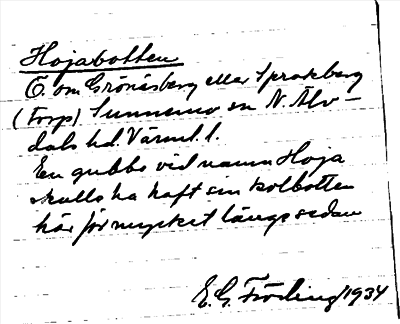 Hojabotten
Ö. om Grönåsberg eller Sprakberg
(Torp) Sunnemo sn N. Älv-
dals hd. Värml. l.
En gubbe vid namn Hoja
skulle ha haft sin kolbotten
här för mycket länge sedan
E. G. Fröding 1934